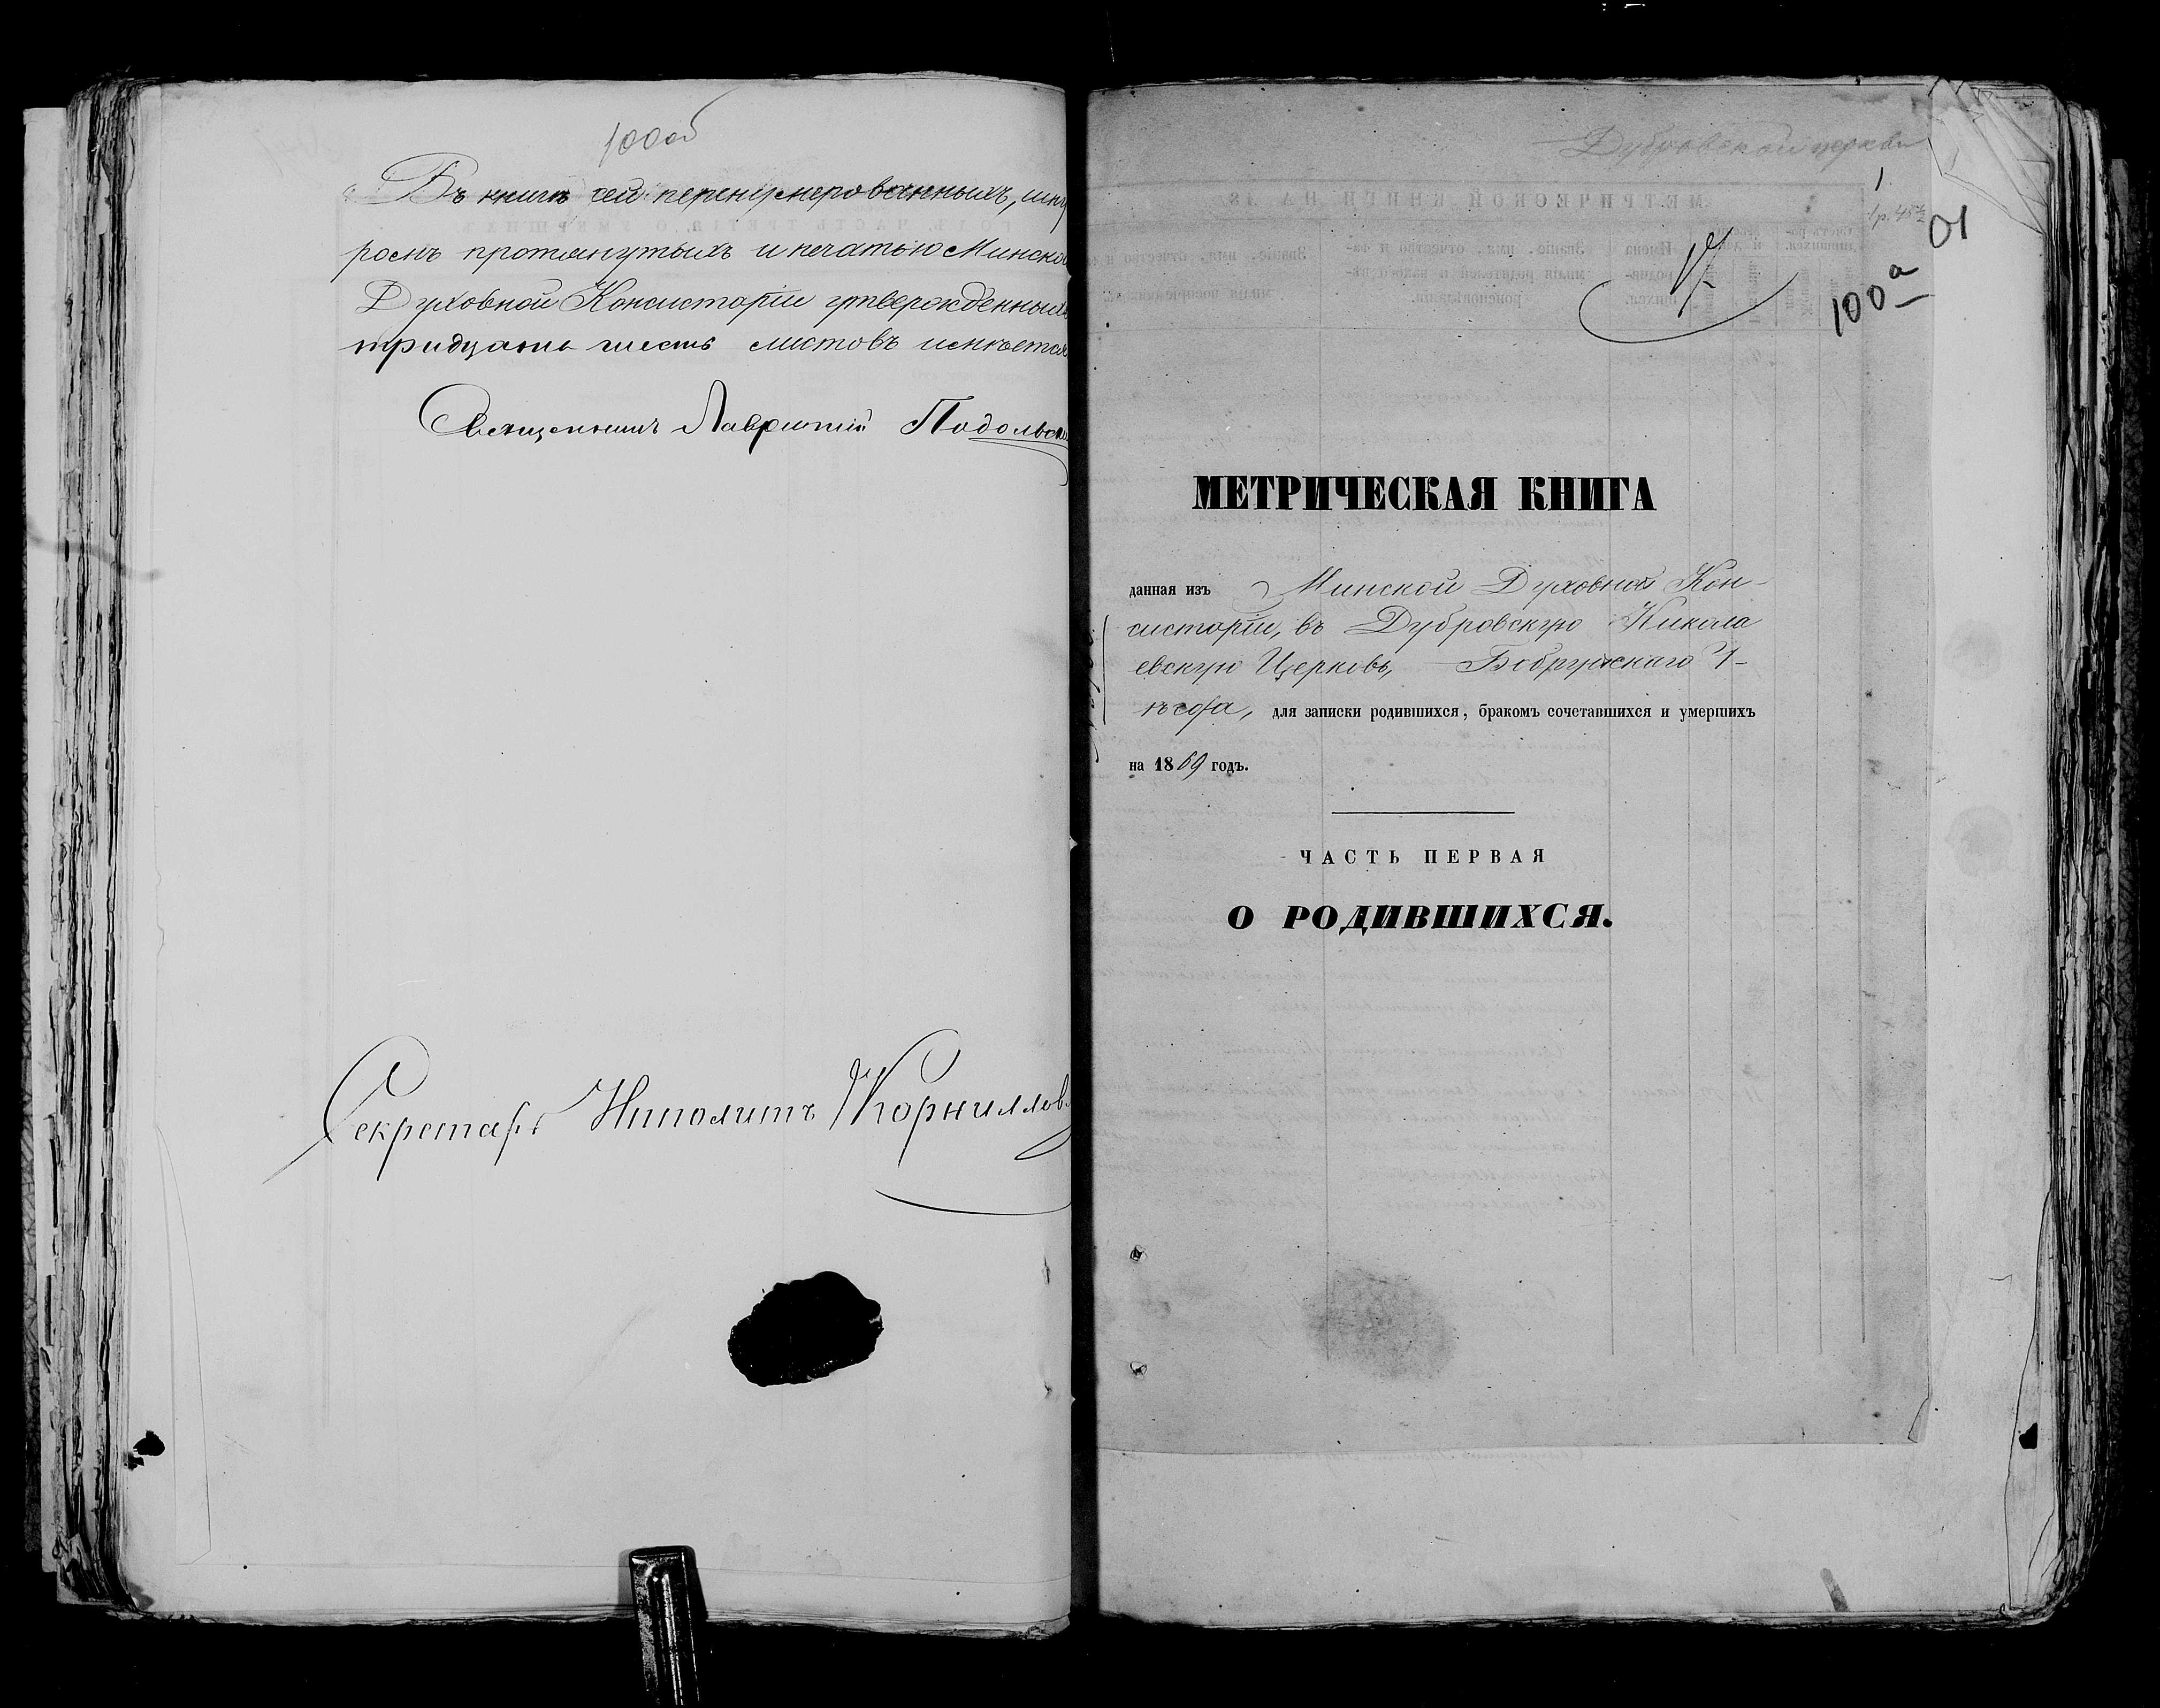 100 об
Въ книгѣ сей перенумерованныхъ, шну
ромъ протянутыхъ и печатью Минской
Духовной Консисторіи утвержденныхъ
тридцать шесть листовъ имѣется
Священникъ Лаврентій Подольскій
Секретарь Ипполитъ Корниллов
Дубровской церкви
1
1 р. 45 ½
01
100а
МЕТРИЧЕСКАЯ КНИГА
данная изъ Минской Духовной Кон-
систоріи, въ Дубровскую Никола
евскую Церковь, Бобруйскаго У-
ѣзда, для записки родившихся, бракомъ сочетавшихся и умершихъ
на 1869 годъ.
ЧАСТЬ ПЕРВАЯ
О РОДИВШИХСЯ.